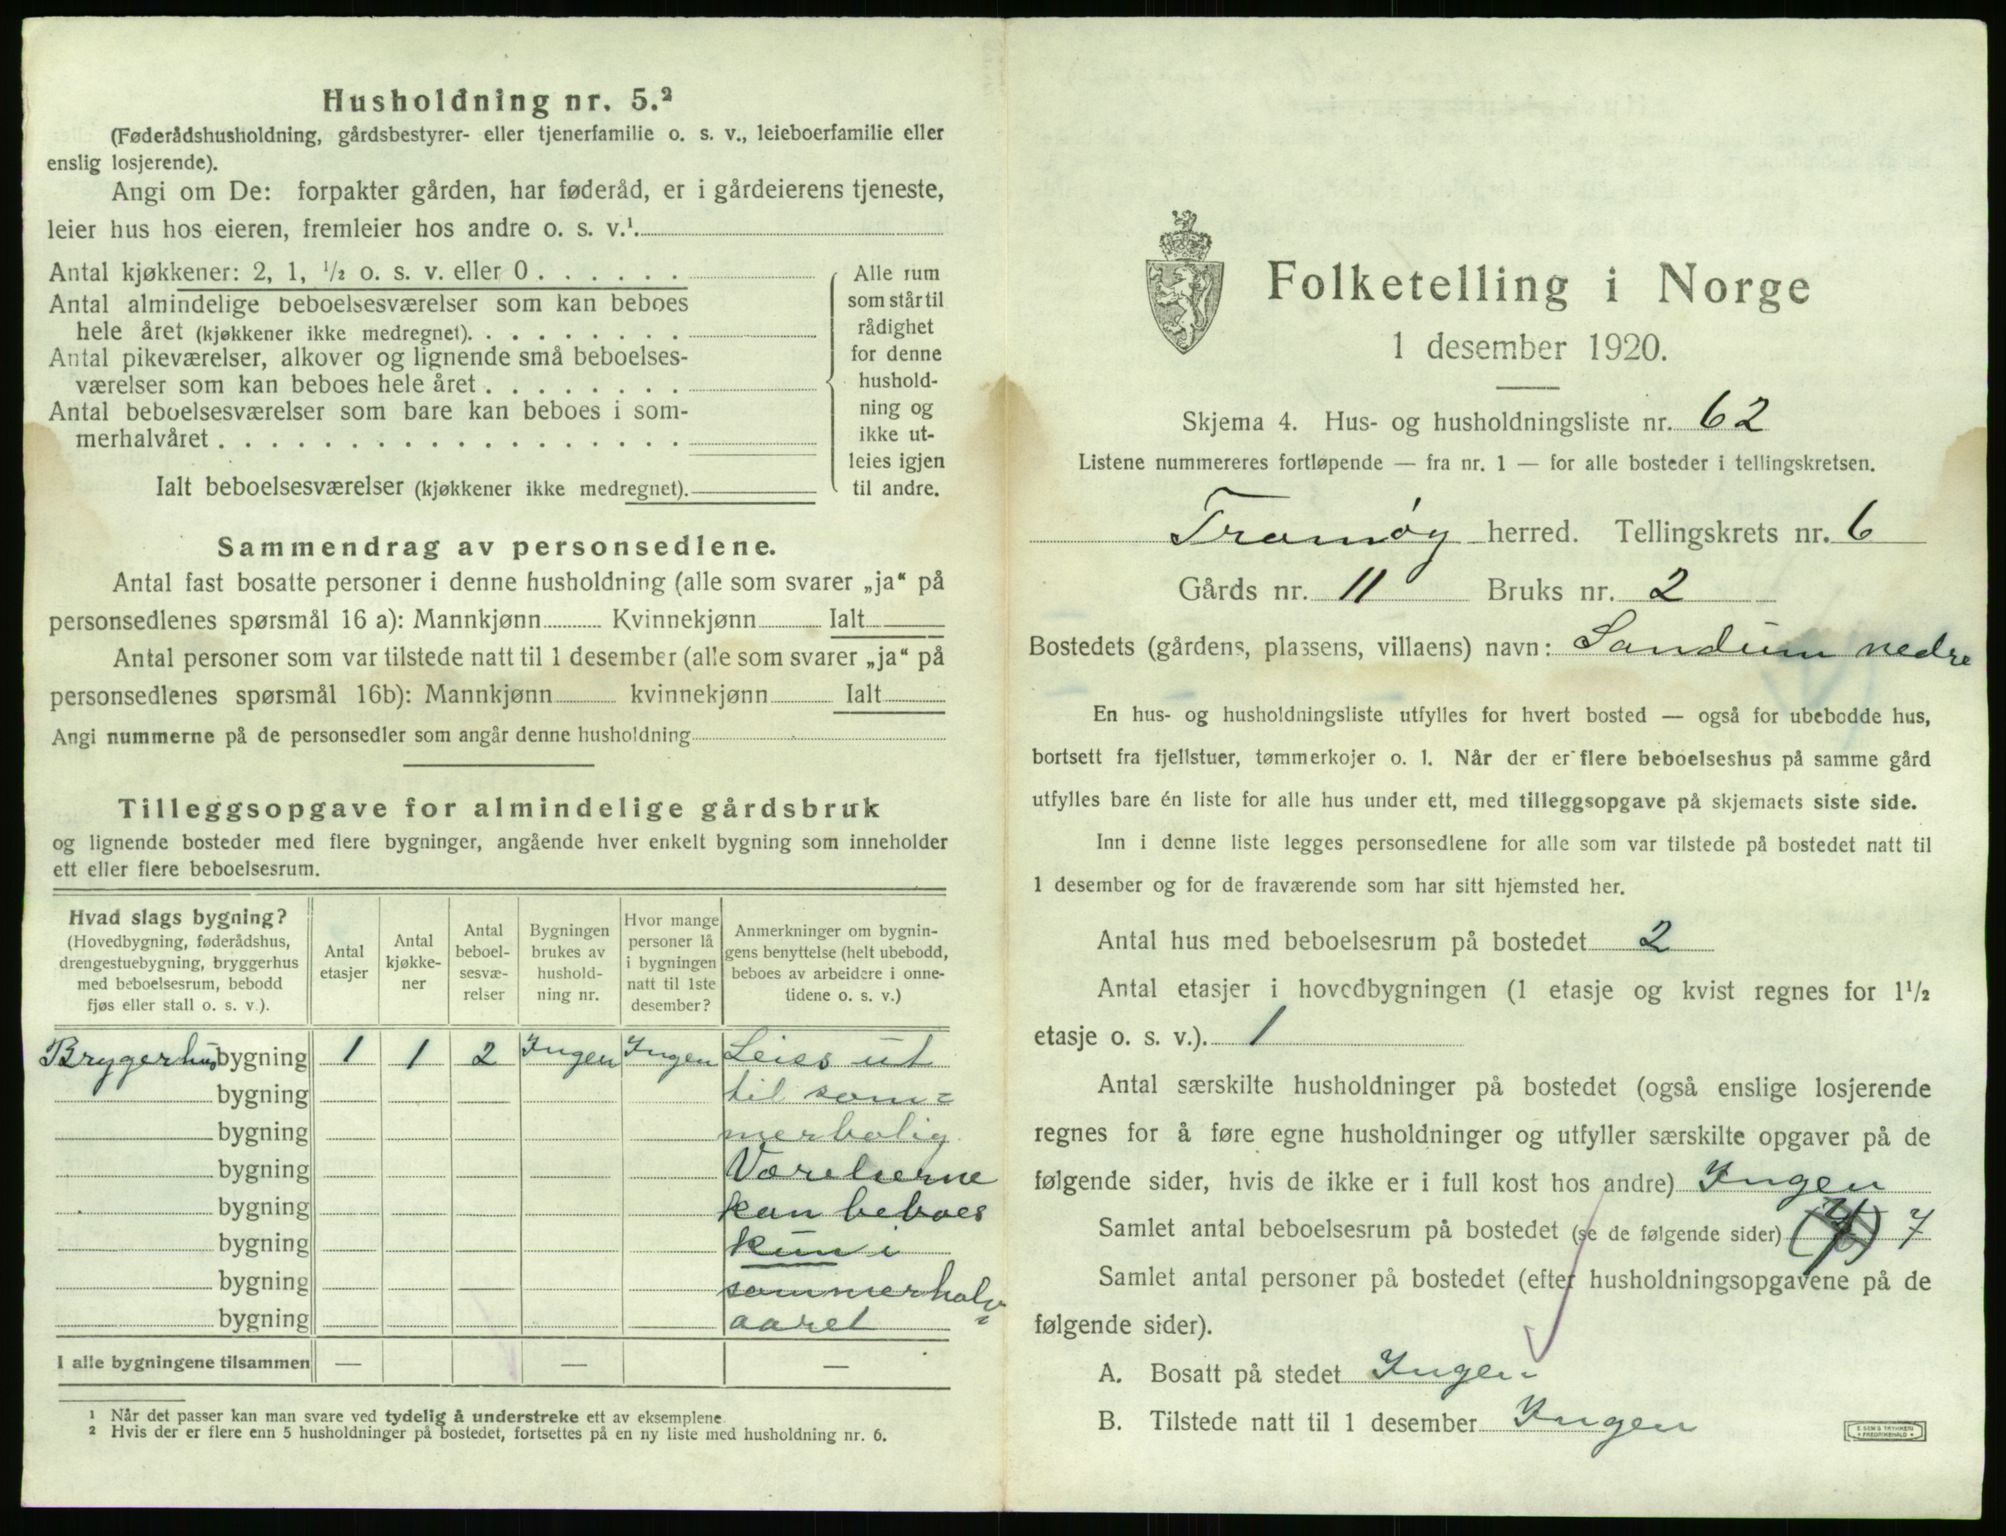 Husholdning nr. 5.²
(Føderådshusholdning, gårdsbestyrer- eller tjenerfamilie o. s. v., leieboerfamilie eller
enslig losjerende).
Angi om De: forpakter gården, har føderåd, er i gårdeierens tjeneste,
leier hus hos eieren, fremleier hos andre o. s. v.¹
Antal kjøkkener: 2, 1, ½ o. s. v. eller 0 . . . . . .
Antal almindelige beboelsesværelser som kan beboes
hele året (kjøkkener ikke medregnet). . . . . . . . .
Antal pikeværelser, alkover og lignende små beboelses-
værelser som kan beboes hele året . . . . . . . .
Antal beboelsesværelser som bare kan beboes i som-
merhalvåret . . . . . . . . . . . . . . . . . .
Ialt beboelsesværelser (kjøkkener ikke medregnet).
Alle rum
som står til
rådighet
for denne
hushold-
ning og
ikke ut-
leies igjen
til andre.
Sammendrag av personsedlene.
Antal fast bosatte personer i denne husholdning (alle som svarer „ja“ på
personsedlenes spørsmål 16 a): Mannkjønn Kvinnekjønn Ialt
Antal personer som var tilstede natt til 1 desember (alle som svarer „ja“ på
personsedlenes spørsmål 16b): Mannkjønn kvinnekjønn Ialt
Angi nummerne på de personsedler som angår denne husholdning
Tilleggsopgave for almindelige gårdsbruk
og lignende bosteder med flere bygninger, angående hver enkelt bygning som inneholder
ett eller flere beboelsesrum.
Hvad slags bygning?
(Hovedbygning, føderådshus,
drengestuebygning, bryggerhus
med beboelsesrum, bebodd
fjøs eller stall o. s. v.).
Antal
etasjer
Antal
kjøkke-
ner
Antal
beboel-
sesvæ-
relser
Bygningen
brukes av
hushold-
ning nr.
Hvor mange
personer lå
i bygningen
natt til 1ste
desember?
Anmerkninger om bygnin-
gens benyttelse (helt ubebodd,
beboes av arbeidere i onne-
tidene o. s. v.)
Brygerhus bygning 1 1 2 Ingen Ingen Leies ut
bygning — — — — — til som=
bygning — — — — — merbolig.
bygning — — — — — Værelserne
bygning — — — — — kan beboes
bygning — — — — — kun i
bygning — — — — — sommerhalv=
bygning — — — — — aaret
I alle bygningene tilsammen — — —
¹ Når det passer kan man svare ved tydelig å understreke ett av eksemplene.
² Hvis der er flere enn 5 husholdninger på bostedet, fortsettes på en ny liste med husholdning nr. 6.
Folketelling i Norge
1 desember 1920.
Skjema 4. Hus- og husholdningsliste nr. 62
Listene nummereres fortløpende — fra nr. 1 — for alle bosteder i tellingskretsen.
Tromøy herred. Tellingskrets nr. 6
Gårds nr. 11 Bruks nr. 2
Bostedets (gårdens, plassens, villaens) navn: Sandum nedre
En hus- og husholdningsliste utfylles for hvert bosted — også for ubebodde hus,
bortsett fra fjellstuer, tømmerkojer o. l. Når der er flere beboelseshus på samme gård
utfylles bare én liste for alle hus under ett, med tilleggsopgave på skjemaets siste side.
Inn i denne liste legges personsedlene for alle som var tilstede på bostedet natt til
1 desember og for de fraværende som har sitt hjemsted her.
Antal hus med beboelsesrum på bostedet 2
Antal etasjer i hovedbygningen (1 etasje og kvist regnes for 1½
etasje o. s. v.). 1
Antal særskilte husholdninger på bostedet (også enslige losjerende
regnes for å føre egne husholdninger og utfyller særskilte opgaver på de
følgende sider, hvis de ikke er i full kost hos andre) Ingen
Samlet antal beboelsesrum på bostedet (se de følgende sider) 7
Samlet antal personer på bostedet (efter husholdningsopgavene på de
følgende sider).
A. Bosatt på stedet Ingen
B. Tilstede natt til 1 desember Ingen